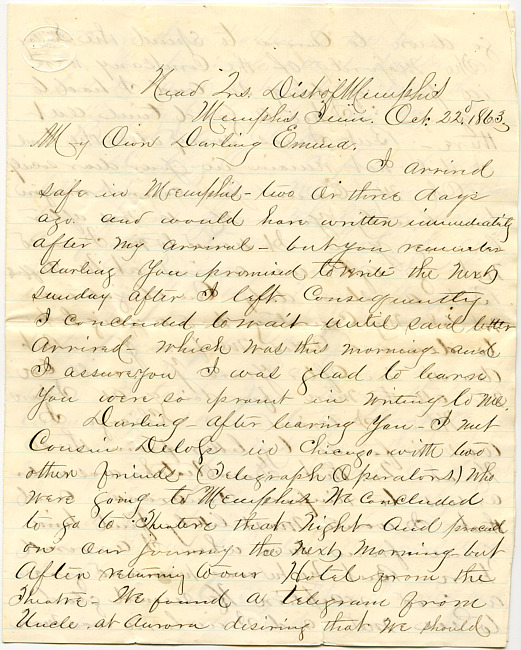 Head Qrs. Dist of Memphis
Memphis Tenn. Oct. 22d 1863
My Own Darling Emma.
I arrived
safe in Memphis - two or three days
ago. and would have written immediately
after my arrival - but you remember
darling You promised to write the next
sunday after I left Consequently
I concluded to wait until said letter
arrived - which was this morning and
I assure you I was glad to learn
You were so promt in writing to me.
Darling - after leaving You - I met
Cousin Deloss in Chicago with two
other friends (Telegraph Operators) who
were going to Memphis We concluded
to go to Theatre that Night and proceed
on our journey the next Morning - but
After returning to our Hotel from the
Theatre - We found a telegram from
Uncle at Aurora desiring that We should